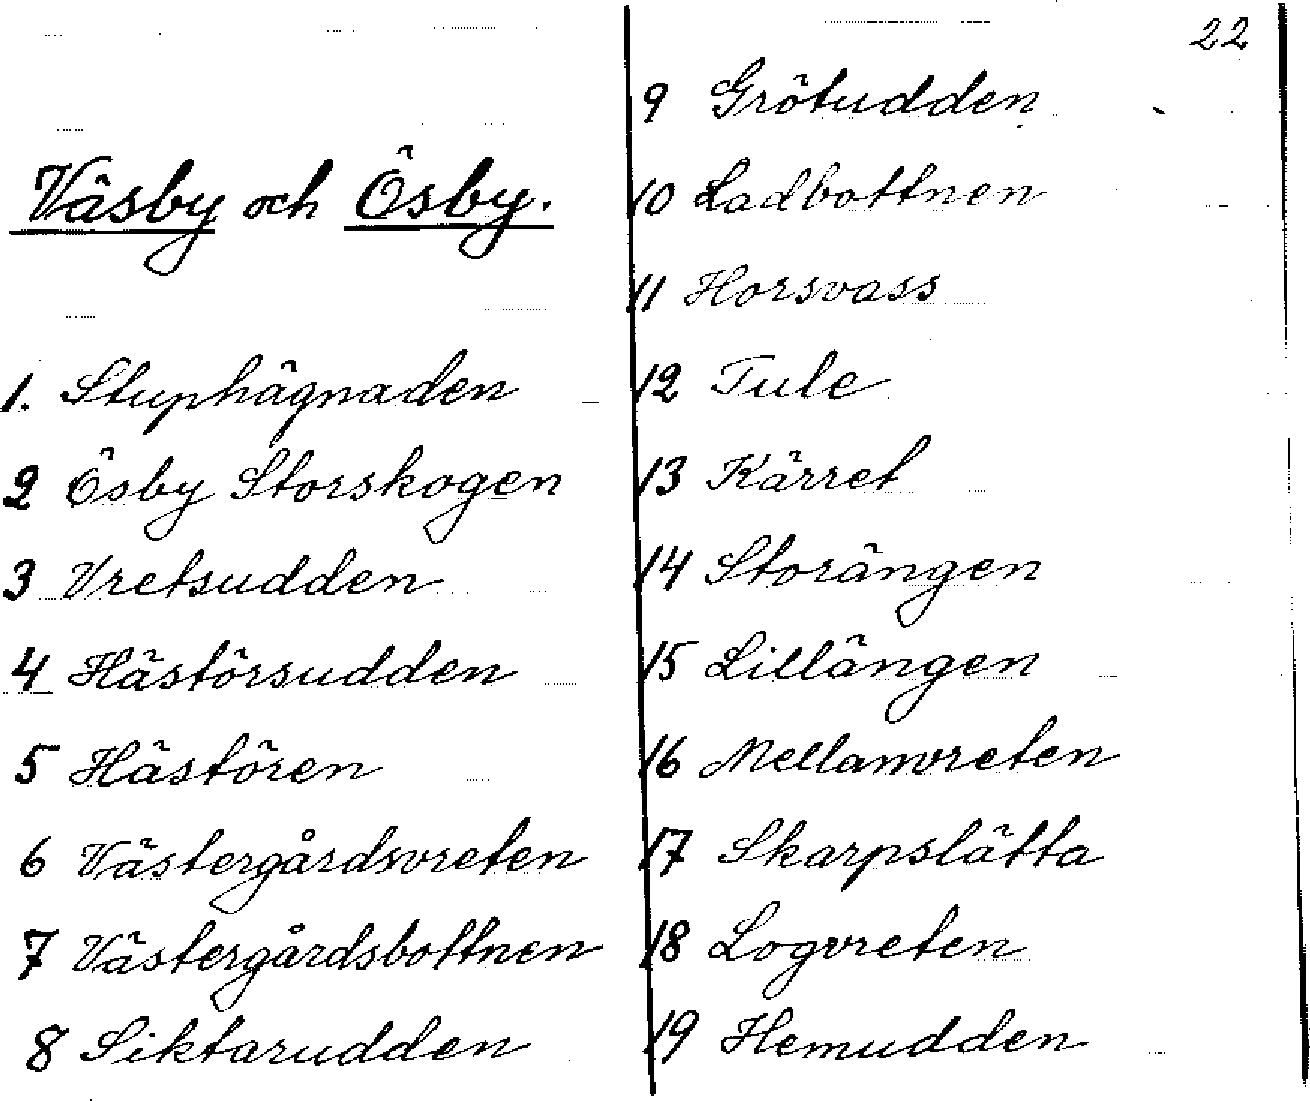 22
Väsby och Ösby.
1. Stuphägnaden
2 Ösby Storskogen
3 Vretsudden
4 Hästörsudden
5 Hästören
6 Västergårdsvreten
7 Västergårdsbottnen
8 Siktarudden
9 Grötudden
10 Ladbottnen
11 Horsvass
12 Tule
13 Kärret
14 Storängen
15 Lillängen
16 Mellanvreten
17 Skarpslätta
18 Logvreten
19 Hemudden